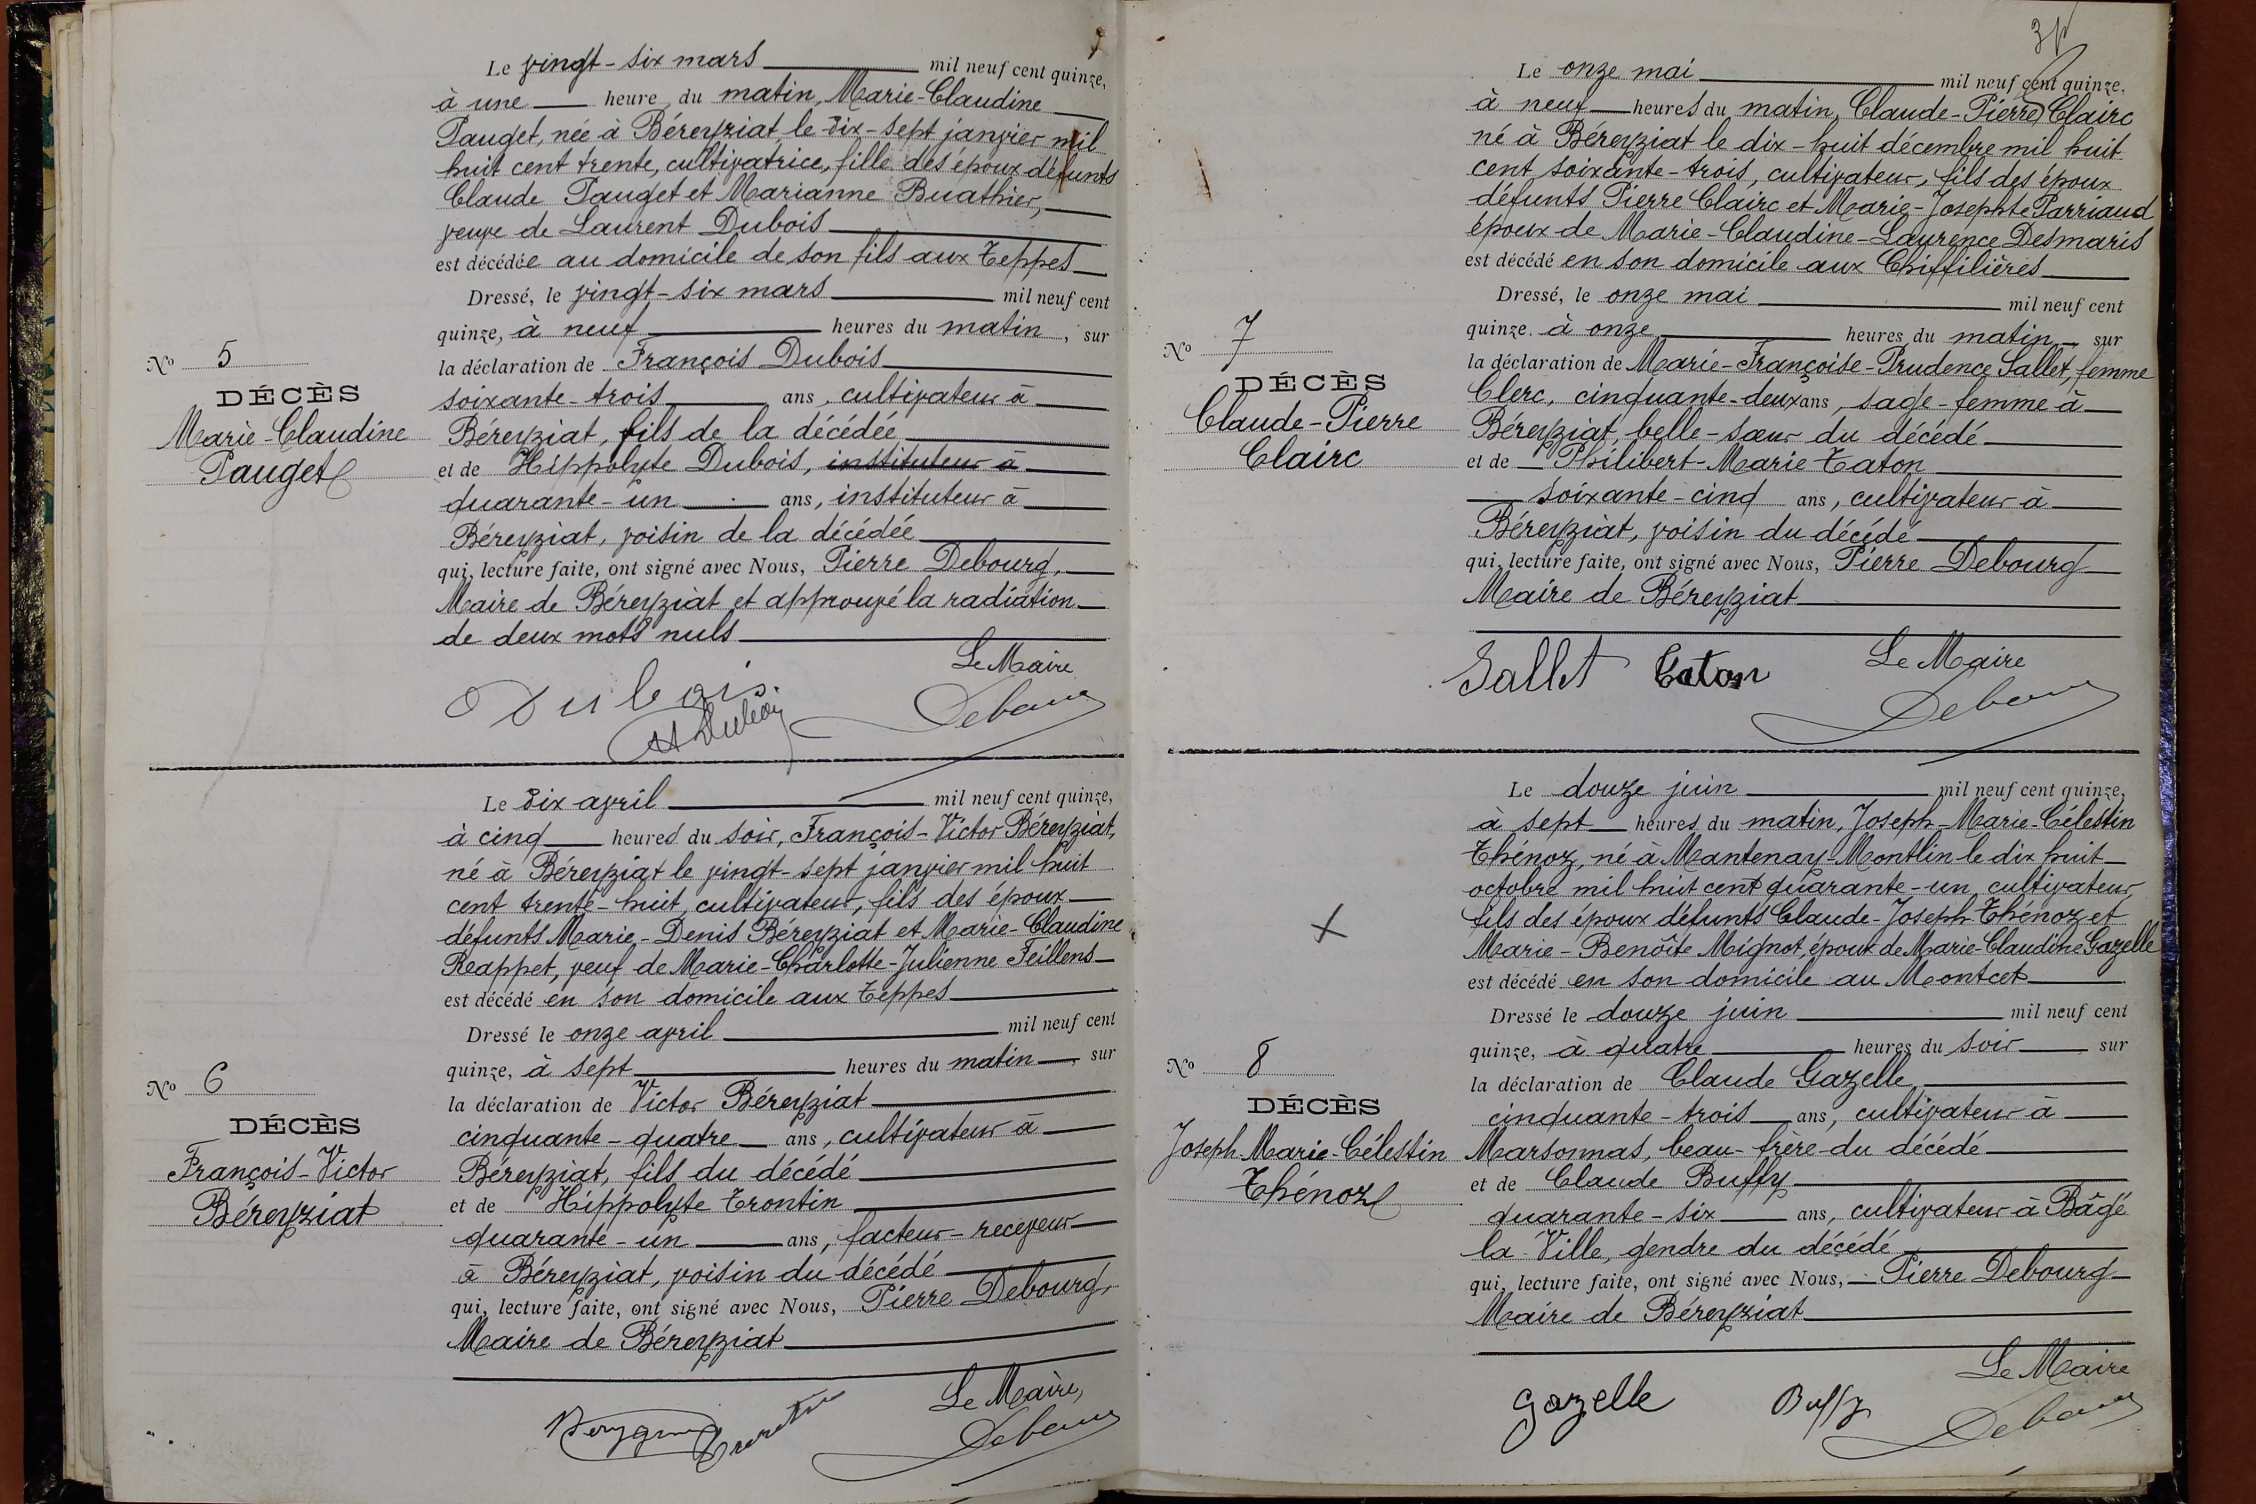 Le vingt-six mars mil neuf cent quinze,
à une heure du matin, Marie-Claudine
Pauget, née à Béreyziat le dix-sept janvier mil
huit cent trente, cultivatrice, fille des époux défunts
Claude Pauget et Marianne Buathier,
veuve de Laurent Dubois
est décédée au domicile de son fils aux Teppes
Dressé, le vingt-six mars mil neuf cent
quinze, à neuf heures du matin, sur
la déclaration de François Dubois
soixante-trois ans, cultivateur à
Béreyziat, fils de la décédée
et de Hippolyte Dubois, instituteur à
quarante-un ans, instituteur à
Béreyziat, voisin de la décédée
qui, lecture faite, ont signé avec Nous, Pierre Debourg,
Maire de Béreyziat et approuvé la radiation
de deux mots nuls
Le Maire
Dubois
H Dubois
Debourg
No 5
DÉCÈS
Marie-Claudine
Pauget
Le dix avril mil neuf cent quinze,
à cinq heures du soir, François-Victor Béreyziat,
né à Béreyziat le vingt-sept janvier mil huit
cent trente-huit, cultivateur, fils des époux
défunts Marie-Denis Béreyziat et Marie-Claudine
Reappet, veuf de Marie-Charlotte-Julienne Feillens
est décédé en son domicile aux Teppes
Dressé le onze avril mil neuf cent
quinze, à sept heures du matin, sur
la déclaration de Victor Béreyziat
cinquante-quatre ans, cultivateur à
Béreyziat, fils du décédé
et de Hippolyte Trontin
quarante-un ans, facteur-receveur
à Béreyziat, voisin du décédé
qui, lecture faite, ont signé avec Nous, Pierre Debourg,
Maire de Béreyziat
Le Maire,
Debourg
No 6
DÉCÈS
François-Victor
Béreyziat
Le onze mai mil neuf cent quinze,
à neuf heures du matin, Claude-Pierre Clairc
né à Béreyziat le dix-huit décembre mil huit
cent soixante-trois, cultivateur, fils des époux
défunts Pierre Clairc et Marie-Josephte Parriaud
époux de Marie-Claudine-Laurence Desmaris
est décédé en son domicile aux Chiffilières
Dressé, le onze mai mil neuf cent
quinze. à onze heures du matin, sur
la déclaration de Marie-Françoise-Prudence Sallet, femme
Clerc, cinquante-deux ans, sage-femme à
Béreyziat, belle-sœur du décédé
et de Philibert-Marie Caton
soixante-cinq ans, cultivateur à
Béreyziat, voisin du décédé
qui, lecture faite, ont signé avec Nous, Pierre Debourg
Maire de Béreyziat
Le Maire
Sallet Caton
Debourg
No 7
DÉCÈS
Claude-Pierre
Clairc
Le douze juin mil neuf cent quinze,
à sept heures du matin, Joseph-Marie-Célestin
Thénoz, né à Mantenay-Montlin le dix huit
octobre mil huit cent quarante-un, cultivateur,
fils des époux défunts Claude-Joseph Thénoz et
Marie-Benoîte Mignot, époux de Marie-Claudine Gazelle
est décédé en son domicile au Montcet
Dressé le douze juin mil neuf cent
quinze, à quatre heures du soir sur
la déclaration de Claude Gazelle
cinquante-trois ans, cultivateur à
Marsonnas, beau-frère du décédé
et de Claude Buffy
quarante-six ans, cultivateur à Bâgé
la Ville, gendre du décédé
qui, lecture faite, ont signé avec Nous, Pierre Debourg
Maire de Béreyziat
Le Maire
Gazelle Buffy
Debourg
No 8
DÉCÈS
Joseph-Marie-Célestin
Thénoz